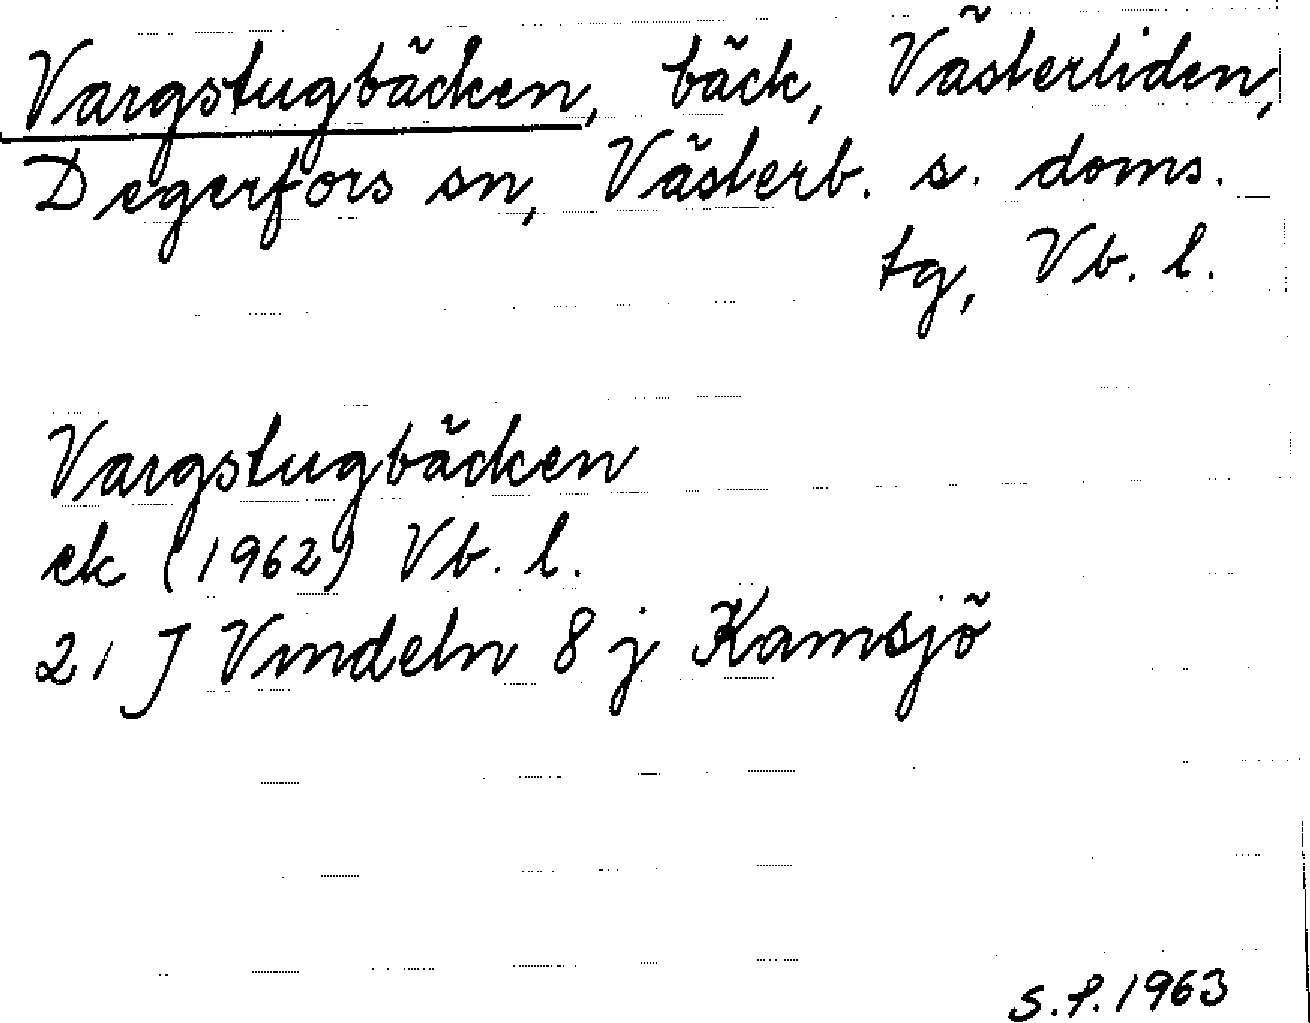 Vargstugbäcken, bäck, Västerliden,
Degerfors sn, Västerb. s. doms.
tg, Vb. l.
Vargstugbäcken
ek (1962) Vb. l.
21 J Vindeln 8 j Ramsjö
S.P. 1963